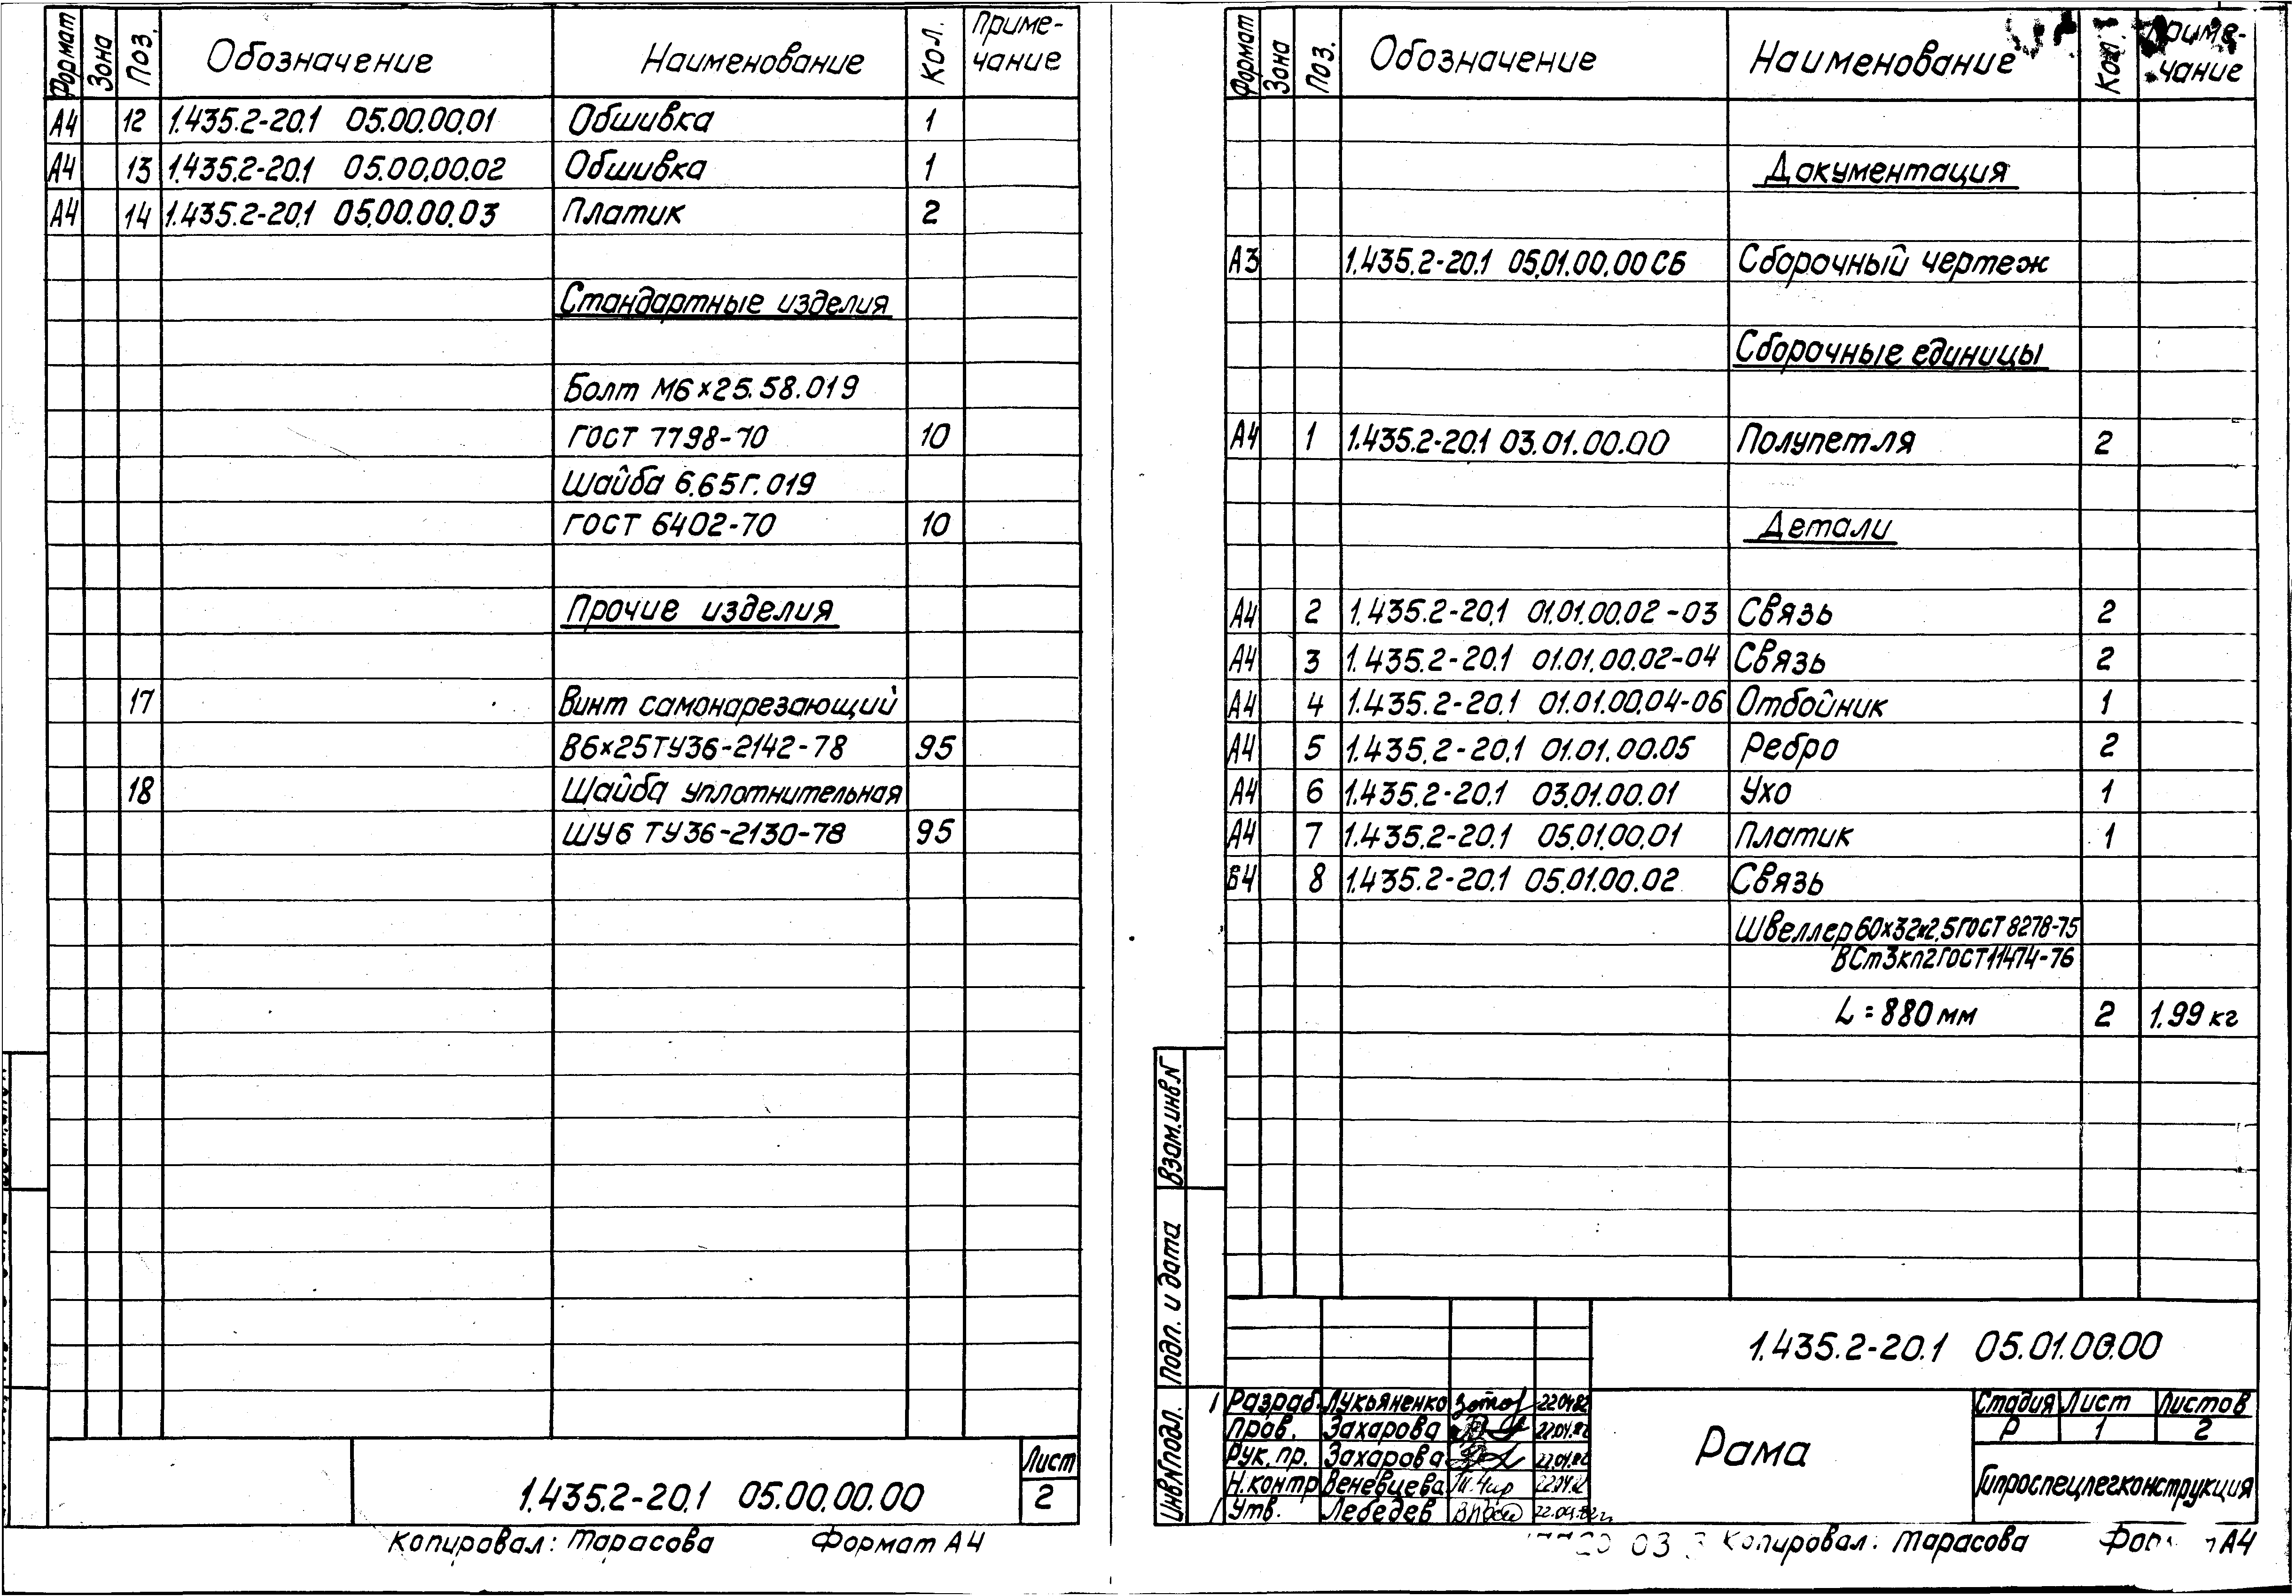 Формат Зона Поз. Обозначение Наименование Кол. Приме-
чание
А4 12 1.435.2-20.1 05.00.00.01 Обшивка 1
А4 13 1.435.2-20.1 05.00.00.02 Обшивка 1
А4 14 1.435.2-20.1 05.00.00.03 Платик 2
Стандартные изделия
Болт М6×25.58.019
ГОСТ 7798-70 10
Шайба 6.65Г.019
ГОСТ 6402-70 10
Прочие изделия
17 Винт самонарезающий
В6×25ТУ36-2142-78 95
18 Шайба уплотнительная
ШУ6 ТУ36-2130-78 95
1.435.2-20.1 05.00.00.00
Лист
2
Копировал: Тарасова Формат А4
Формат Зона Поз. Обозначение Наименование Кол. Приме-
чание
Документация
А3 1.435.2-20.1 05.01.00.00 СБ Сборочный чертеж
Сборочные единицы
А4 1 1.435.2-20.1 03.01.00.00 Полупетля 2
Детали
А4 2 1.435.2-20.1 01.01.00.02-03 Связь 2
А4 3 1.435.2-20.1 01.01.00.02-04 Связь 2
А4 4 1.435.2-20.1 01.01.00.04-06 Отбойник 1
А4 5 1.435.2-20.1 01.01.00.05 Ребро 2
А4 6 1.435.2-20.1 03.01.00.01 Ухо 1
А4 7 1.435.2-20.1 05.01.00.01 Платик 1
Б4 8 1.435.2-20.1 05.01.00.02 Связь
Швеллер 60×32×2,5 ГОСТ 8278-75
ВСт3кп2 ГОСТ 11474-76
L=880 мм 2 1.99 кг
Взам.инв.N
Подп. и дата
Инв.N подл.
1.435.2-20.1 05.01.00.00
Разраб. Лукьяненко 22.04.82
Пров. Захарова 22.04.82
Рук. пр. Захарова 22.04.82
Н.контр Веневцева 22.04.82
Утв. Лебедев 22.04.82г.
Рама
Стадия Лист Листов
Р 1 2
Гипроспецлегконструкция
Копировал: Тарасова А4